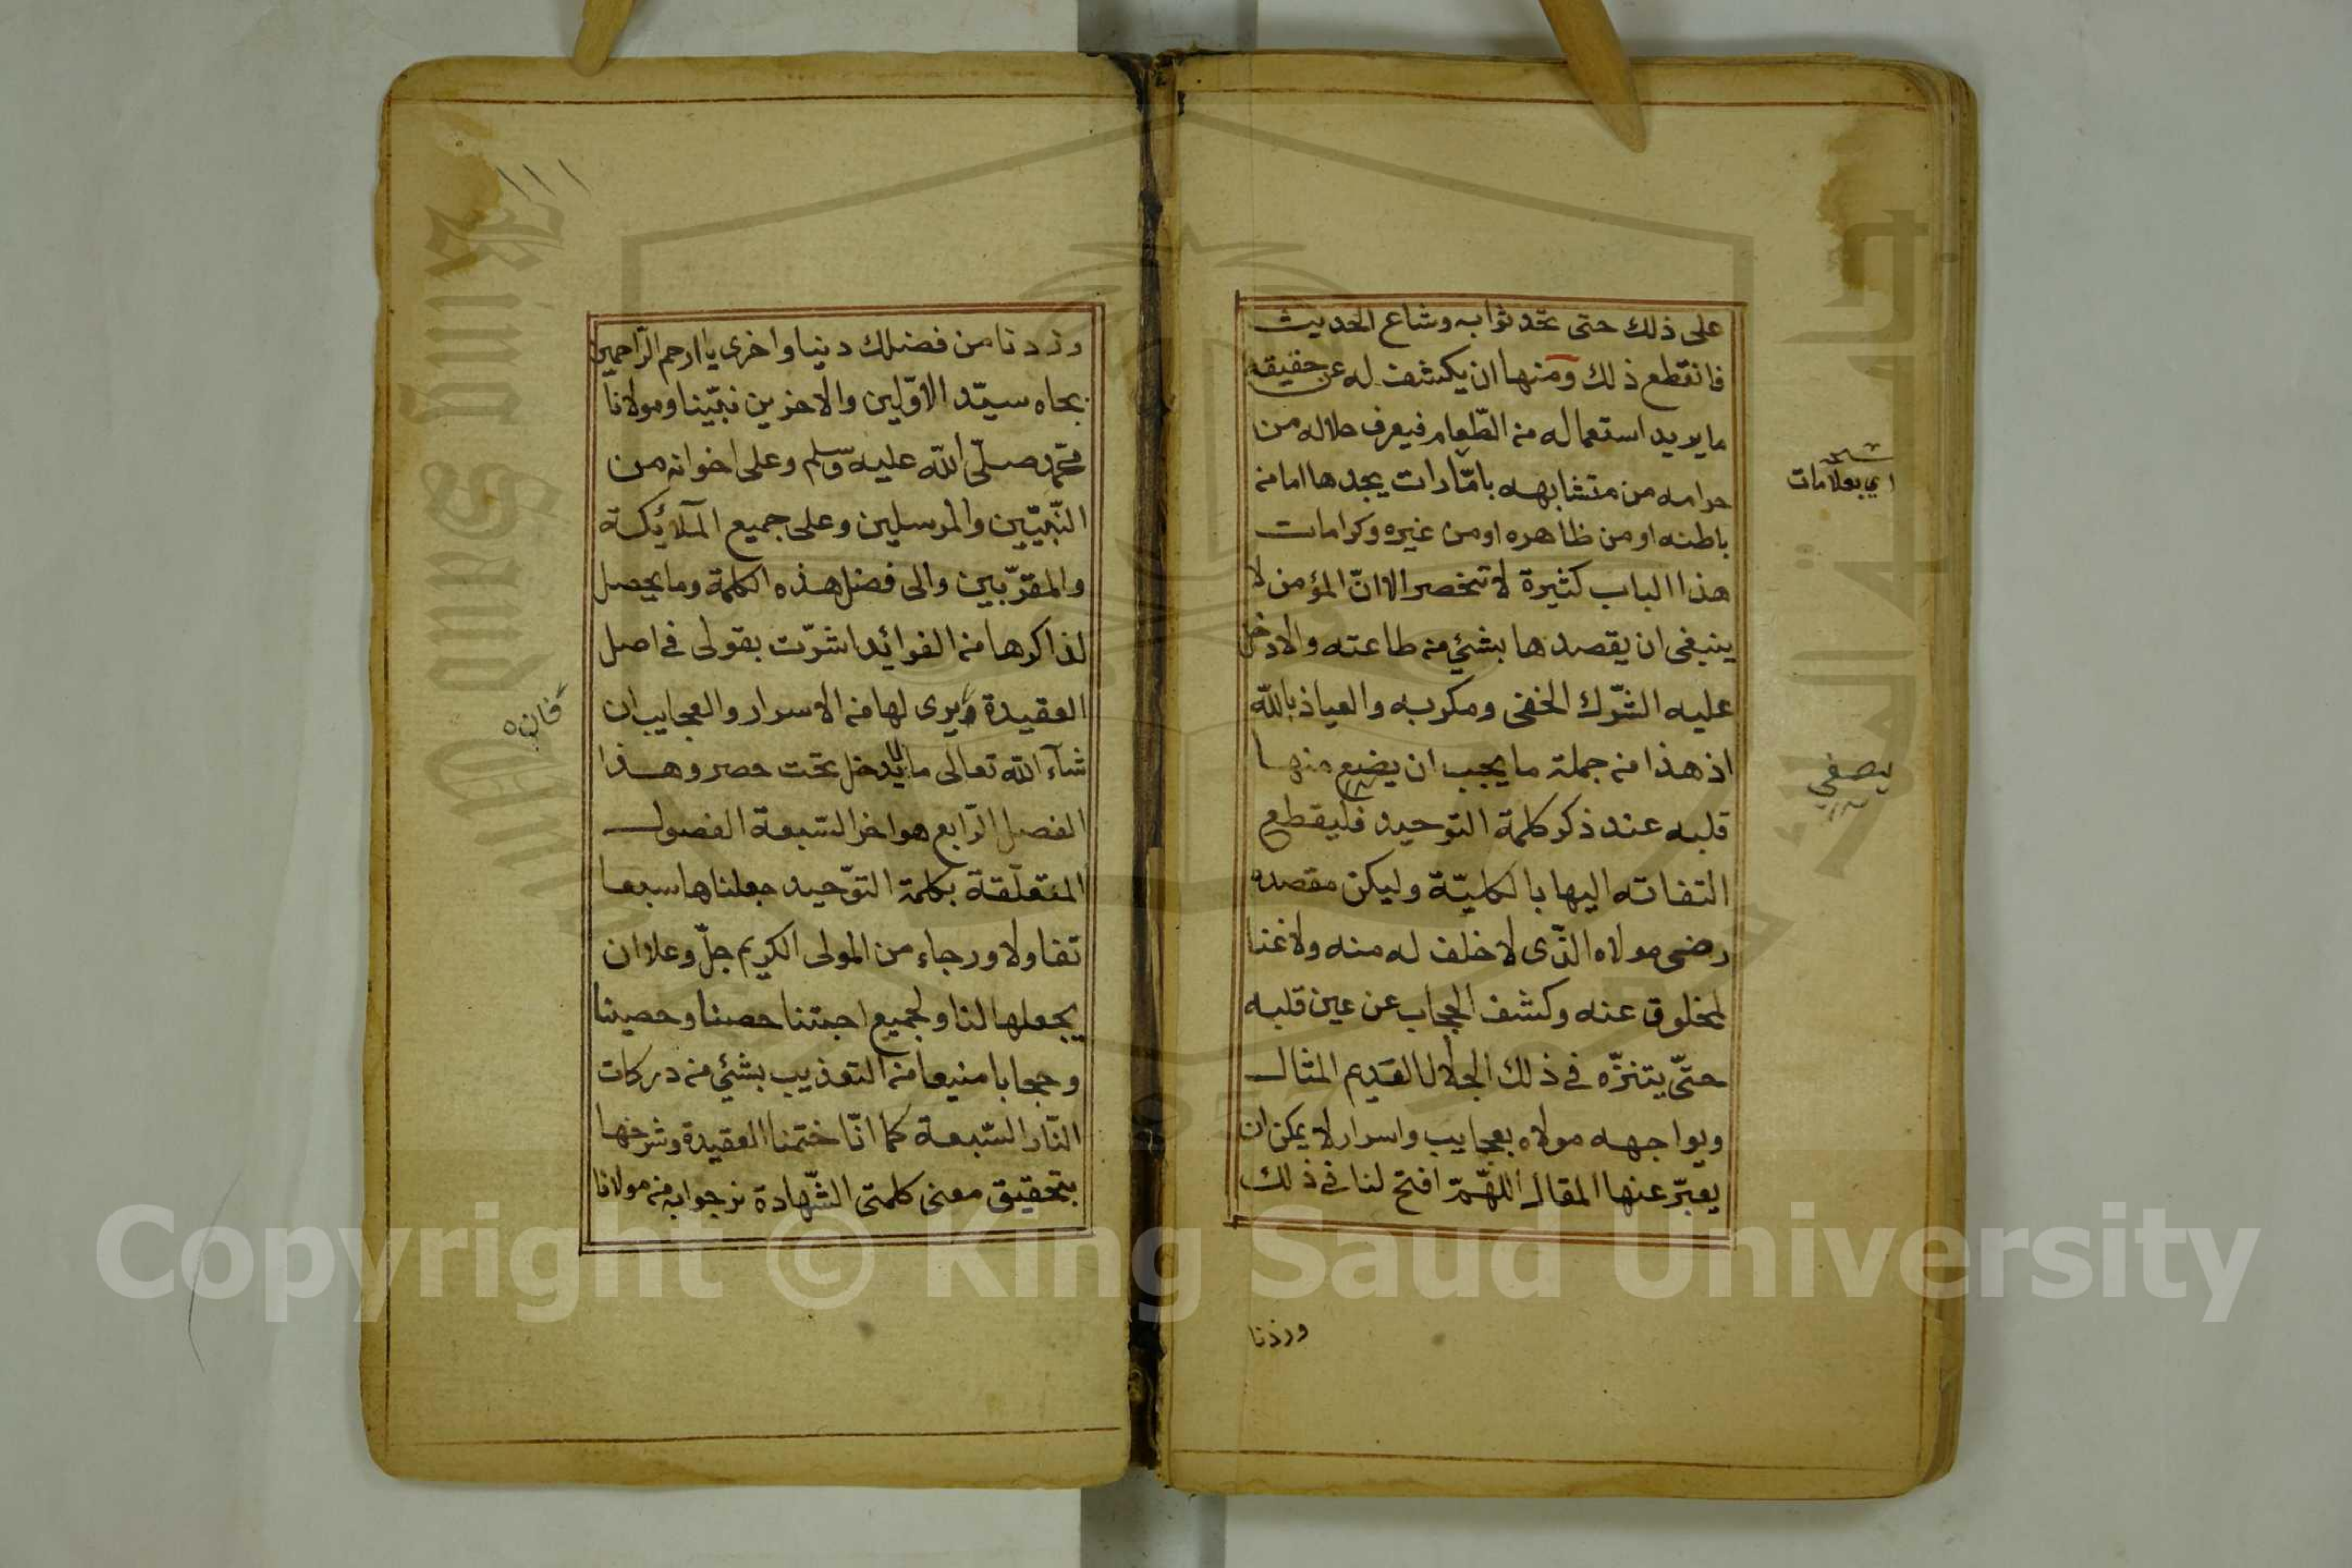 على ذلك حتى تحدثوا به وشاع الحديث
فانقطع ذلك ومنها ان يكشف له عن حقيقة
ما يريد استعماله من الطّعام فيعرف حلاله من
حرامه من متشابهه بامّارات يجدها اما من
باطنه او من ظاهره او من غيره وكرامات
هذا الباب كثيرة لا تنحصر الا انّ المؤمن لا
ينبغى ان يقصدها بشئ من طاعته والا دخل
عليه الشّرك الخفى ومكر به والعياذ بالله
اذ هذا من جملة ما يجب ان يضع منها
قلبه عند ذكر كلمة التوحيد فليقطع
التفاته اليها بالكليّة وليكن مقصده
رضى مولاه الذّى لا خلف له منه ولا غنا
لمخلوق عنه وكشف الحجاب عن عين قلبه
حتّى يتنزّه فى ذلك الجلال القديم المثال
ويواجهه مولاه بعجايب واسرار لا يمكن ان
يعبّر عنها المقال اللهّمّ افتح لنا فى ذلك
وزدنا
اي بعلامات
يصفي
وزدنا من فضلك دنيا واخرى يا ارحم الرّاحمين
بجاه سيّد الاوّلين والاخرين نبيّنا ومولانا
محمّد صلّى الله عليه وسلم وعلى اخوانه من
النّبيّين والمرسلين وعلى جميع الملآئكة
والمقرّبين والى فضل هذه الكلمة وما يحصل
لذاكرها من الفوائد اشرّت بقولى فى اصل
العقيدة يرى لها من الاسرار والعجايب ان
شآء الله تعالى ما لا يدخل تحت حصر وهذا
الفصل الرّابع هو اخر السّبعة الفصول
المتعلّقة بكلمة التوّحيد جعلناها سبعا
تفاولا ورجاء من المولى الكريم جلّ وعلا ان
يجعلها لنا ولجميع احبتنا حصنا وحصينا
وحجابا منيعا من التعذيب بشئ من دركات
النّار السّبعة كما انّا ختمنا العقيدة وشرحها
بتحقيق معنى كلمتى الشّهادة نرجوا به من مولانا
فانه
Copyright © King Saud University